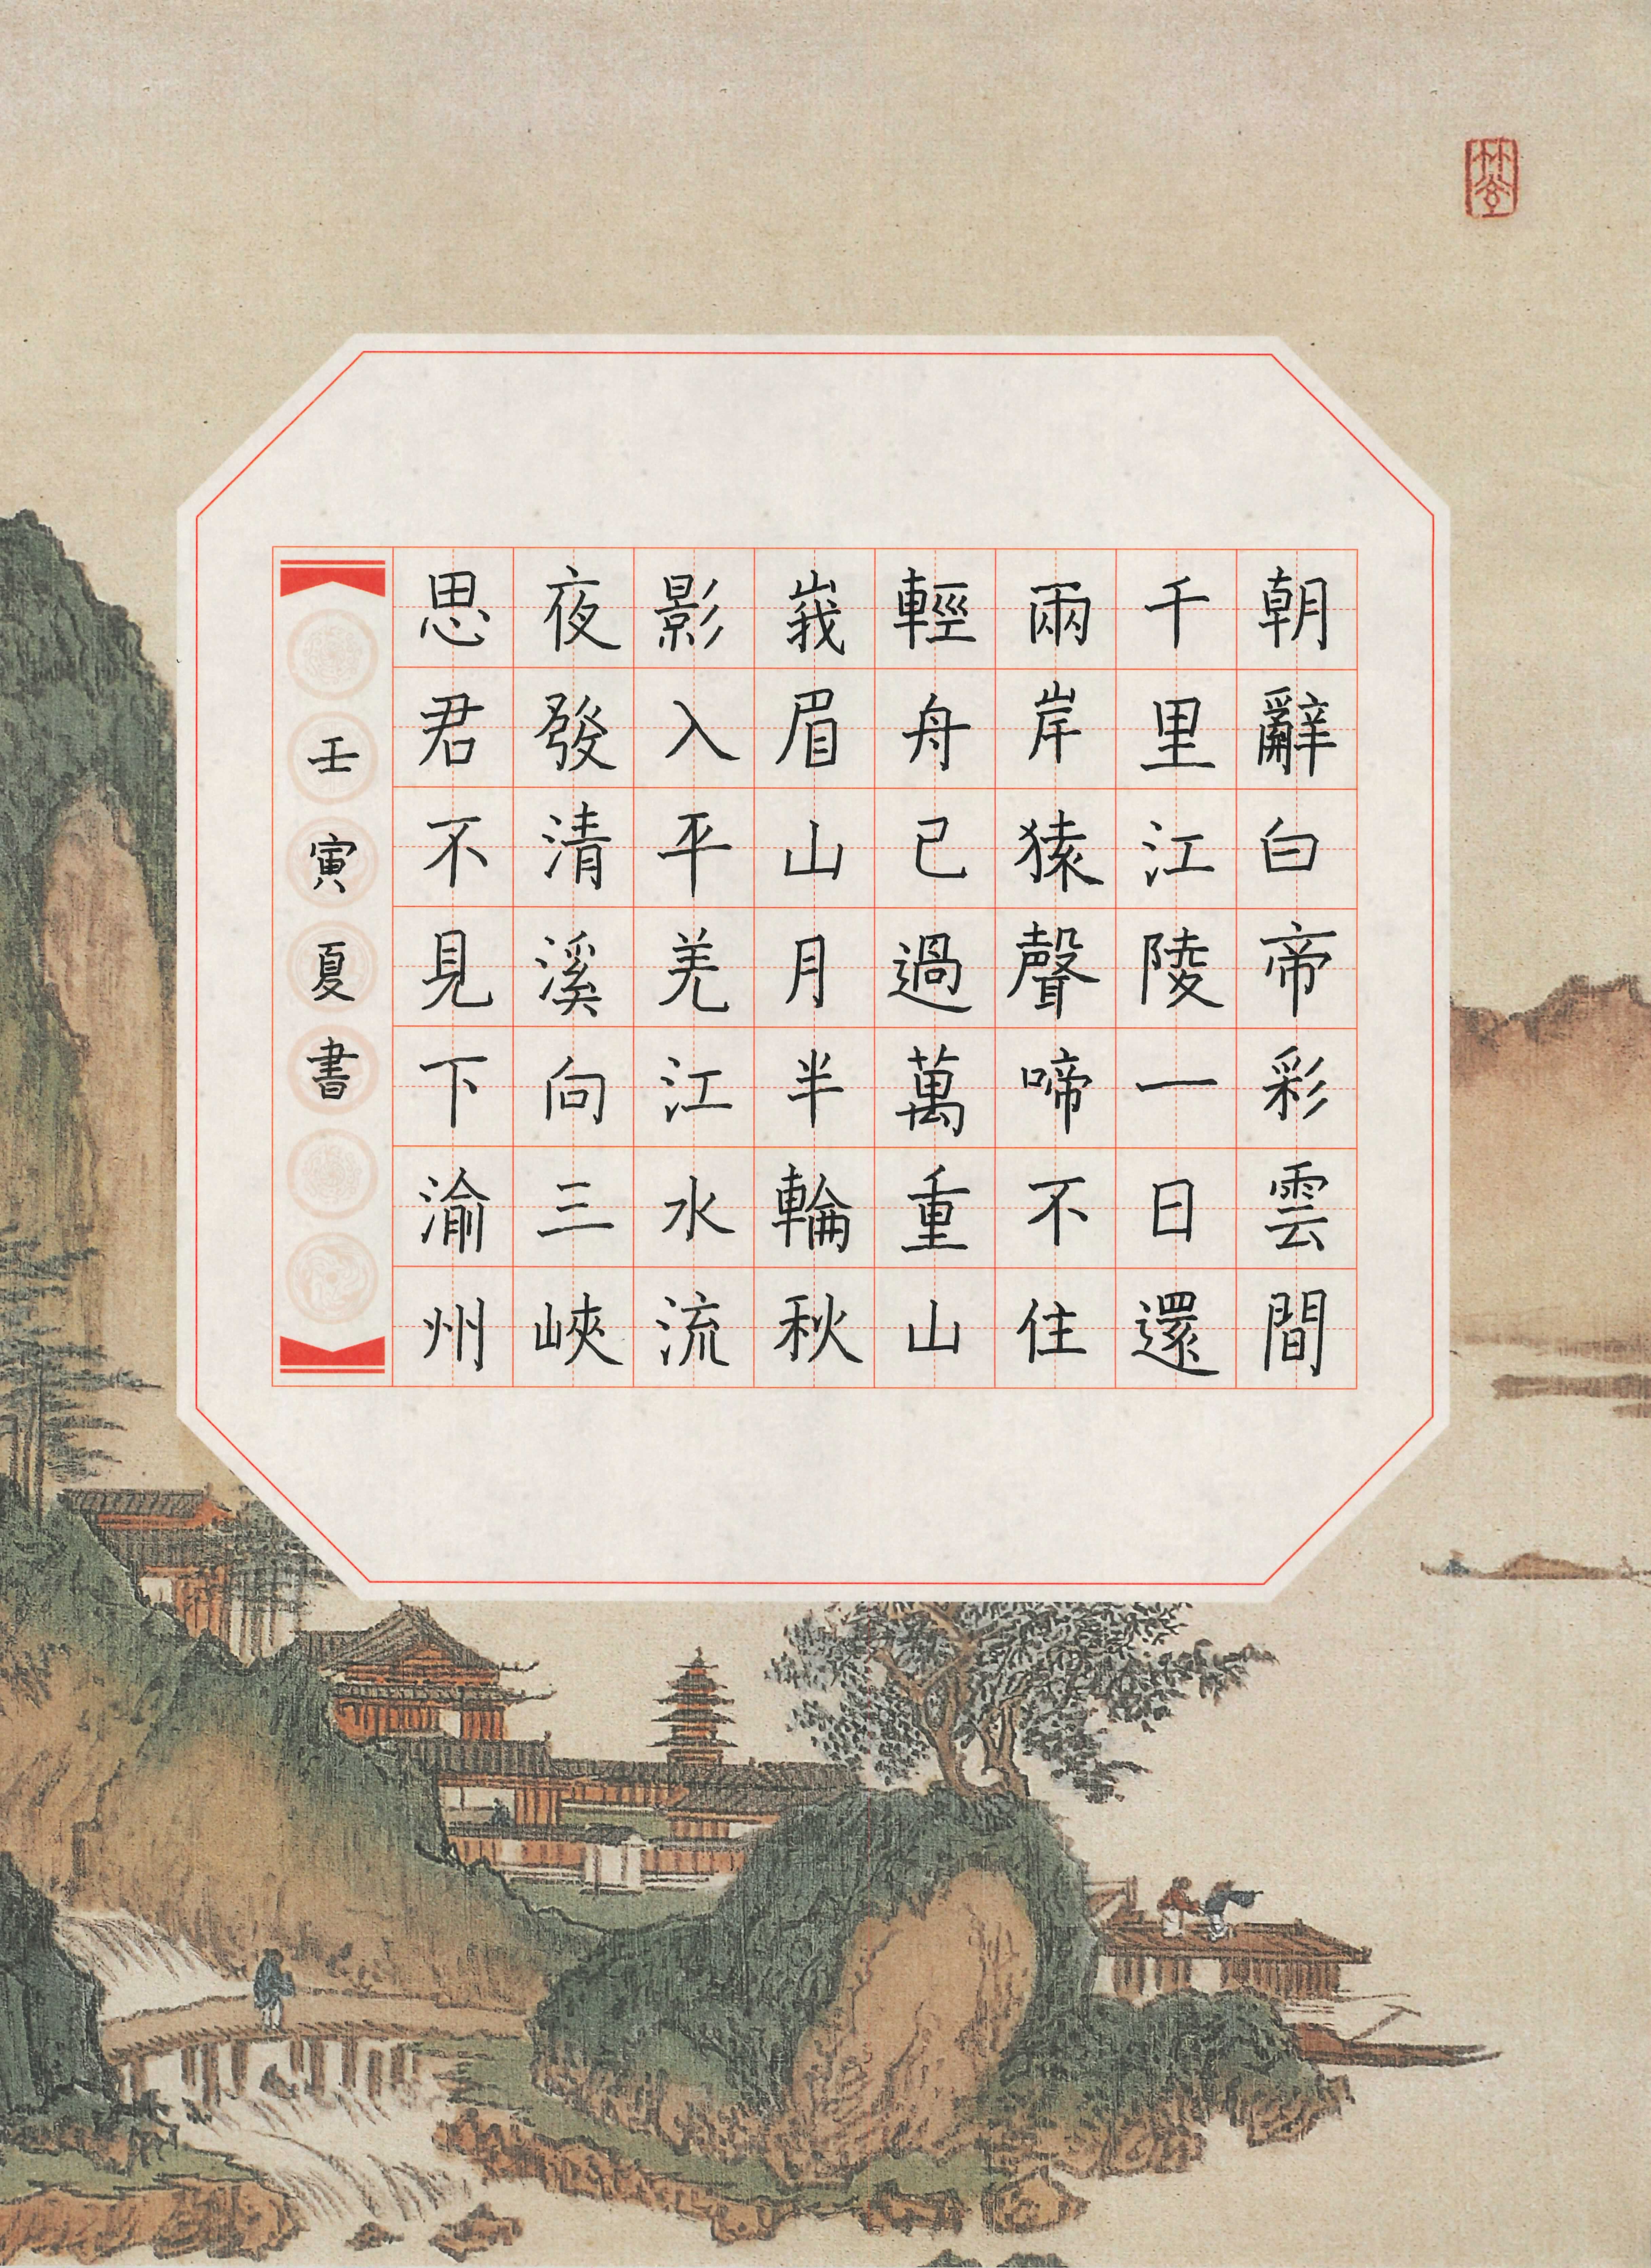 朝辭白帝彩雲間
千里江陵一日還
兩岸猿聲啼不住
輕舟已過萬重山
峩眉山月半輪秋
影入平羌江水流
夜發清溪向三峽
思君不見下渝州
壬寅夏書